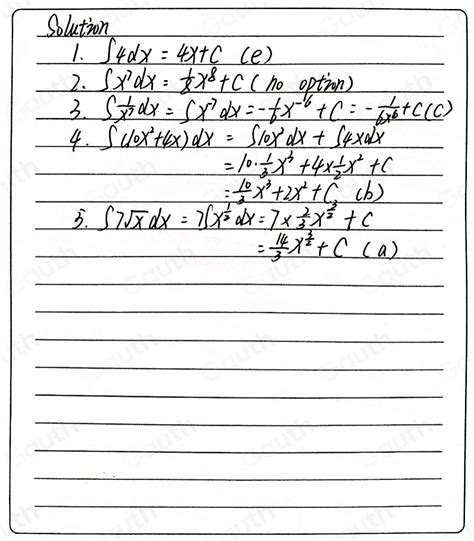 Solution
1. ∫4dx = 4x+C (e)
2. ∫x⁷dx = 1/8 x⁸ + C ( no option)
3. ∫1/x⁷ dx = ∫x⁻⁷dx = -1/6 x⁻⁶ + C = -1/6x⁶ + C (C)
4. ∫(10x²+4x)dx = ∫10x²dx + ∫4xdx
= 10·1/3 x³ + 4×1/2 x² + C
= 10/3 x³ + 2x² + C (b)
5. ∫7√x dx = 7∫x^(1/2) dx = 7 × 2/3 x^(3/2) + C
= 14/3 x^(3/2) + C (a)